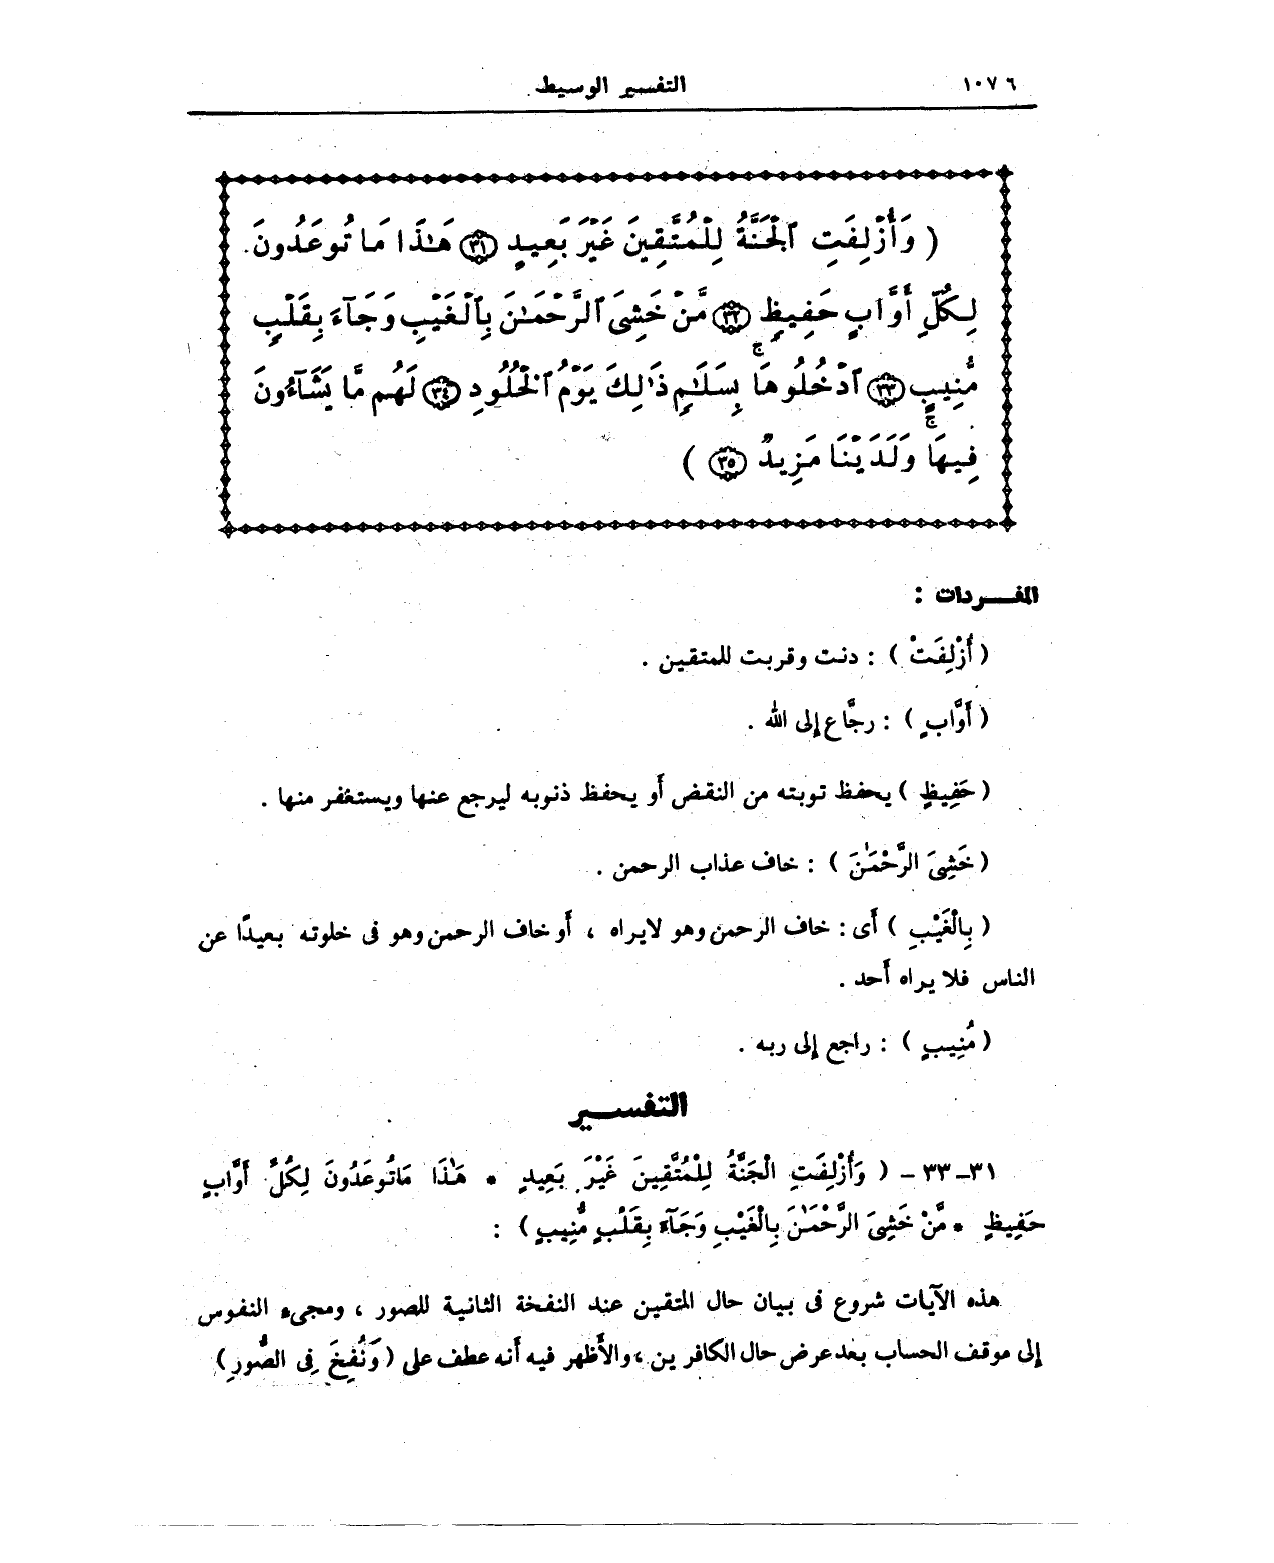 ١٠٧٦ التفسير الوسيط
( وَأُزْلِفَتِ ٱلْجَنَّةُ لِلْمُتَّقِينَ غَيْرَ بَعِيدٍ ٣١ هَـٰذَا مَا تُوعَدُونَ
لِكُلِّ أَوَّابٍ حَفِيظٍ ٣٢ مَّنْ خَشِىَ ٱلرَّحْمَـٰنَ بِٱلْغَيْبِ وَجَآءَ بِقَلْبٍ
مُّنِيبٍ ٣٣ ٱدْخُلُوهَا بِسَلَـٰمٍ ۖ ذَٰلِكَ يَوْمُ ٱلْخُلُودِ ٣٤ لَهُم مَّا يَشَآءُونَ
فِيهَا وَلَدَيْنَا مَزِيدٌ ٣٥ )
المفـــردات :
( أُزْلِفَتْ ) : دنت وقربت للمتقين .
( أَوَّابٍ ) : رجَّاع إلى الله .
( حَفِيظٍ ) يحفظ توبته من النقض أو يحفظ ذنوبه ليرجع عنها ويستغفر منها .
( خَشِىَ الرَّحْمَـٰنَ ) : خاف عذاب الرحمن .
( بِالْغَيْبِ ) أى : خاف الرحمن وهو لايراه ، أو خاف الرحمن وهو فى خلوته بعيدًا عن
الناس فلا يراه أحد .
( مُنِيبٍ ) : راجع إلى ربه .
التفســـير
٣١-٣٣ - ( وَأُزْلِفَتِ الْجَنَّةُ لِلْمُتَّقِينَ غَيْرَ بَعِيدٍ * هَـٰذَا مَاتُوعَدُونَ لِكُلِّ أَوَّابٍ
حَفِيظٍ * مَّنْ خَشِىَ الرَّحْمَـٰنَ بِالْغَيْبِ وَجَآءَ بِقَلْبٍ مُّنِيبٍ ) :
هذه الآيات شروع فى بيان حال المتقين عند النفخة الثانية للصور ، ومجىء النفوس
إلى موقف الحساب بعد عرض حال الكافرين ، والأظهر فيه أنه عطف على ( وَنُفِخَ فِى الصُّورِ )